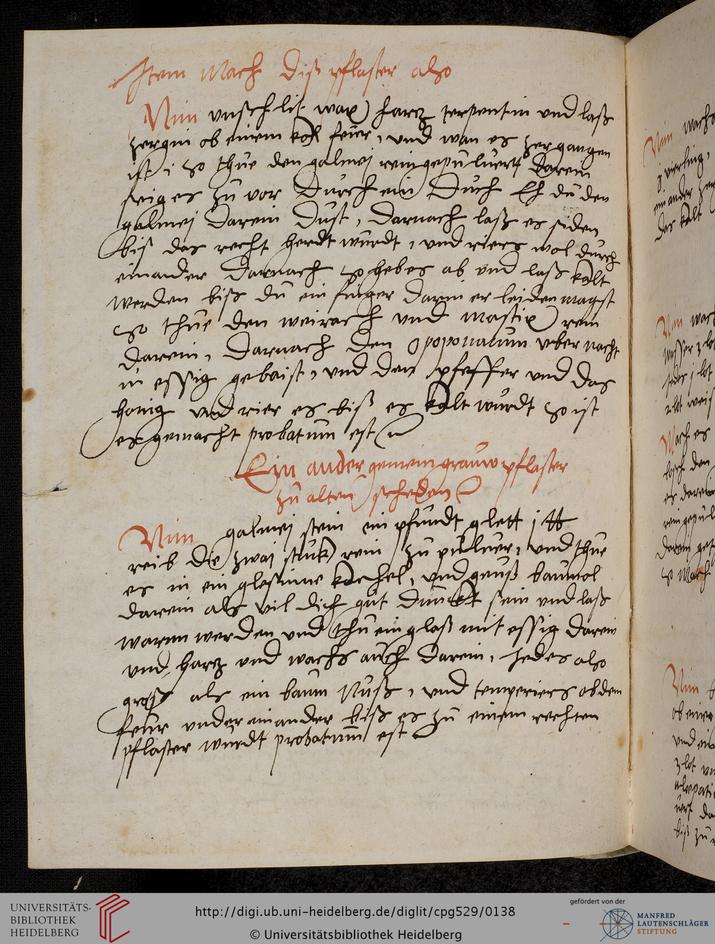 Item Mach diß pflaster also
Nim unschlit wax harz terpentin und laß
zergen ob einem kol feuer, und wan es zergangen
ist, so thue den galmej rein gepuluert darein
seig es zu vor durch ein duch Eh du den
galmej darein dust, darnach laß es siden
biß das recht herdt wurdt, und riers wol durch
einander darnach so heb es ab und laß kalt
werden biß du ein finger darin erleiden magst
so thue den weirach und mastix rein
darein, darnach den opoponacum uber nacht
in essig gebaist, und den pfeffer und das
honig und rier es biß es kalt wurdt so ist
es gemacht probatum est
Ein ander gemein grauw pflaster
zu alten scheden
Nim galmej stein ein pfundt glett j lb
reib die zwaj stuk rein zu puluer, und thue
es in ein glesinne kachel, und geuß baumol
darein als vil dich gut dunkt sein und laß
warm werden und thu ein glaß mit essig darein
und harz und wachs auch darein, jedes also
groß als ein baum Nuß, und temperiers ob dem
feur under einander biß es zu einem rechten
pflaster wurdt probatum est
UNIVERSITÄTS-
BIBLIOTHEK
HEIDELBERG
http://digi.ub.uni-heidelberg.de/diglit/cpg529/0138
© Universitätsbibliothek Heidelberg
gefördert von der
MANFRED
LAUTENSCHLÄGER
STIFTUNG